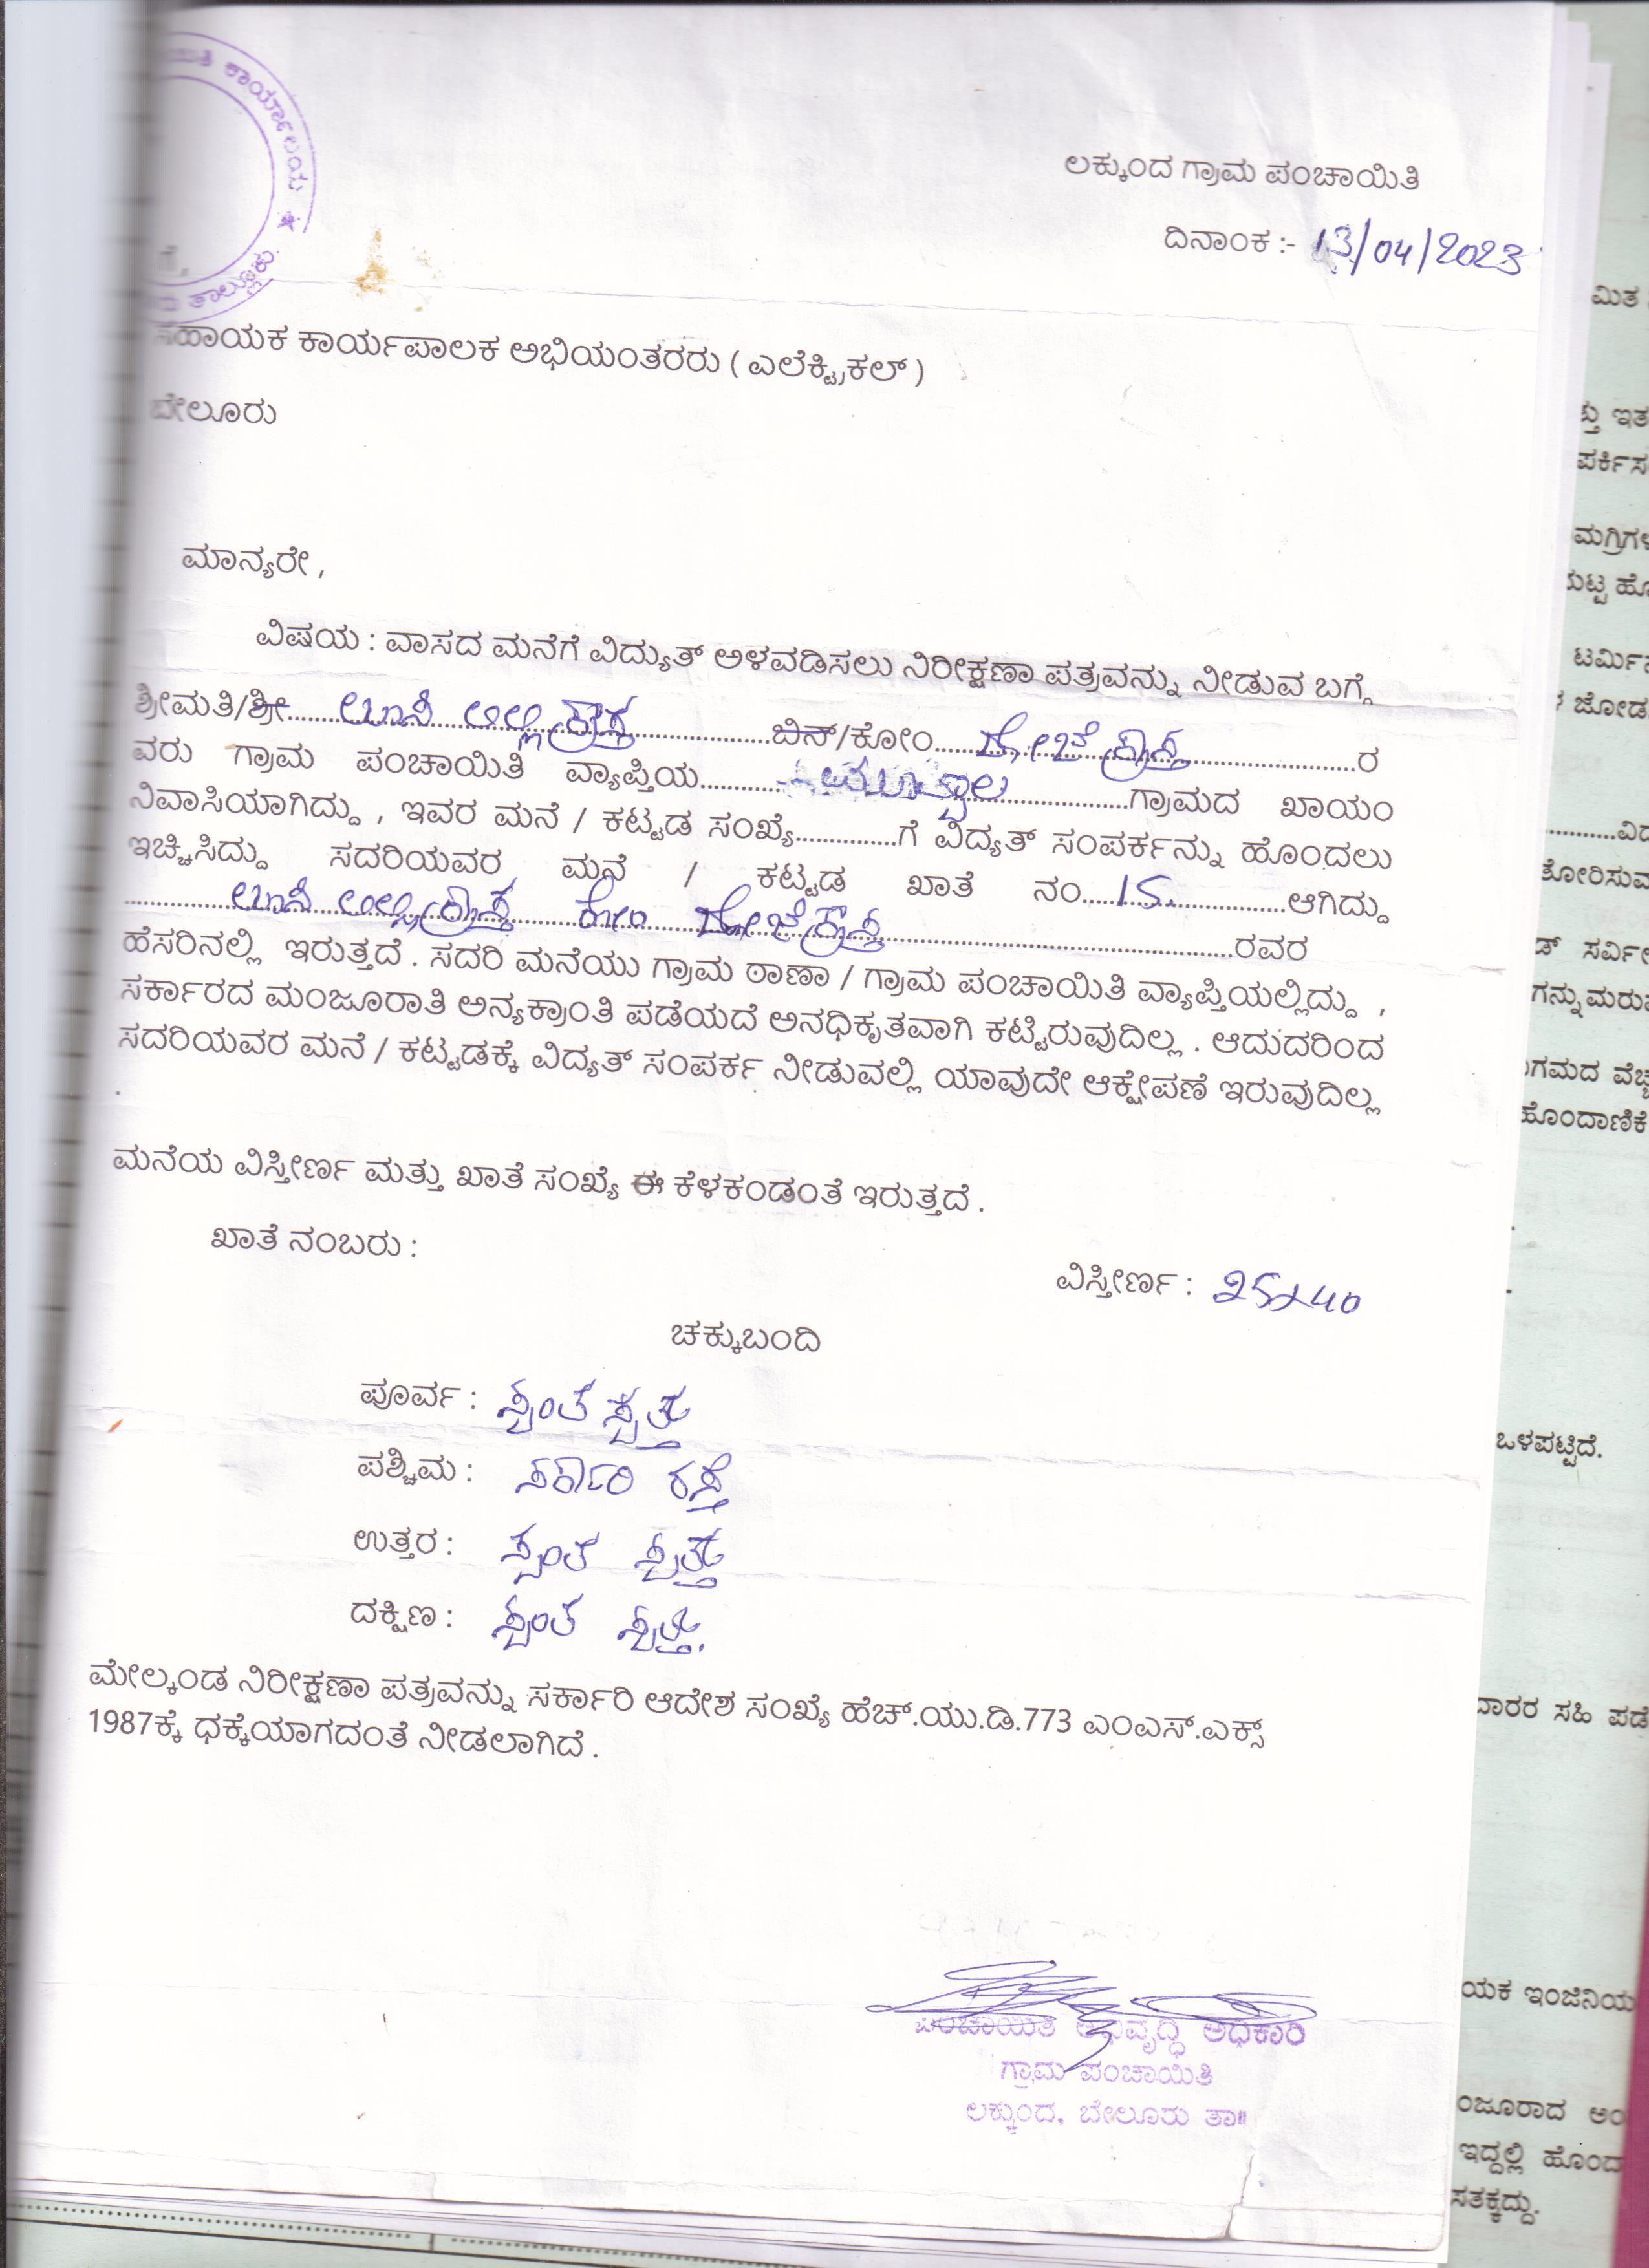 ಕಾರ್ಯಾಲಯ ★
ತಾಲ್ಲೂಕು
ಲಕ್ಕುಂದ ಗ್ರಾಮ ಪಂಚಾಯಿತಿ
ದಿನಾಂಕ :- 13/04/2023
ಗೆ,
ಸಹಾಯಕ ಕಾರ್ಯಪಾಲಕ ಅಭಿಯಂತರರು ( ಎಲೆಕ್ಟ್ರಿಕಲ್ )
ಬೇಲೂರು
ಮಾನ್ಯರೇ ,
ವಿಷಯ : ವಾಸದ ಮನೆಗೆ ವಿದ್ಯುತ್ ಅಳವಡಿಸಲು ನಿರೀಕ್ಷಣಾ ಪತ್ರವನ್ನು ನೀಡುವ ಬಗ್ಗೆ
ಶ್ರೀಮತಿ/ಶ್ರೀ.................ಬಿನ್/ಕೋಂ.................ರ
ವರು ಗ್ರಾಮ ಪಂಚಾಯಿತಿ ವ್ಯಾಪ್ತಿಯ.................ಗ್ರಾಮದ ಖಾಯಂ
ನಿವಾಸಿಯಾಗಿದ್ದು , ಇವರ ಮನೆ / ಕಟ್ಟಡ ಸಂಖ್ಯೆ.............ಗೆ ವಿದ್ಯತ್ ಸಂಪರ್ಕನ್ನು ಹೊಂದಲು
ಇಚ್ಚಿಸಿದ್ದು ಸದರಿಯವರ ಮನೆ / ಕಟ್ಟಡ ಖಾತೆ ನಂ.....15..................ಆಗಿದ್ದು
.................ಕೋಂ.................ರವರ
ಹೆಸರಿನಲ್ಲಿ ಇರುತ್ತದೆ . ಸದರಿ ಮನೆಯು ಗ್ರಾಮ ಠಾಣಾ / ಗ್ರಾಮ ಪಂಚಾಯಿತಿ ವ್ಯಾಪ್ತಿಯಲ್ಲಿದ್ದು ,
ಸರ್ಕಾರದ ಮಂಜೂರಾತಿ ಅನ್ಯಕ್ರಾಂತಿ ಪಡೆಯದೆ ಅನಧಿಕೃತವಾಗಿ ಕಟ್ಟಿರುವುದಿಲ್ಲ . ಆದುದರಿಂದ
ಸದರಿಯವರ ಮನೆ / ಕಟ್ಟಡಕ್ಕೆ ವಿದ್ಯತ್ ಸಂಪರ್ಕ ನೀಡುವಲ್ಲಿ ಯಾವುದೇ ಆಕ್ಷೇಪಣೆ ಇರುವುದಿಲ್ಲ
.
ಮನೆಯ ವಿಸ್ತೀರ್ಣ ಮತ್ತು ಖಾತೆ ಸಂಖ್ಯೆ ಈ ಕೆಳಕಂಡಂತೆ ಇರುತ್ತದೆ .
ಖಾತೆ ನಂಬರು :
ವಿಸ್ತೀರ್ಣ : 25x40
ಚಕ್ಕುಬಂದಿ
ಪೂರ್ವ : ಸ್ವಂತ ಸ್ವತ್ತು
ಪಶ್ಚಿಮ : ಸರ್ಕಾರಿ ರಸ್ತೆ
ಉತ್ತರ : ಸ್ವಂತ ಸ್ವತ್ತು
ದಕ್ಷಿಣ : ಸ್ವಂತ ಸ್ವತ್ತು.
ಮೇಲ್ಕಂಡ ನಿರೀಕ್ಷಣಾ ಪತ್ರವನ್ನು ಸರ್ಕಾರಿ ಆದೇಶ ಸಂಖ್ಯೆ ಹೆಚ್.ಯು.ಡಿ.773 ಎಂಎಸ್.ಎಕ್ಸ್
1987ಕ್ಕೆ ಧಕ್ಕೆಯಾಗದಂತೆ ನೀಡಲಾಗಿದೆ .
ಪಂಚಾಯಿತಿ ಅಭಿವೃದ್ಧಿ ಅಧಿಕಾರಿ
ಗ್ರಾಮ ಪಂಚಾಯಿತಿ
ಲಕ್ಕುಂದ, ಬೇಲೂರು ತಾ॥
ಒಳಪಟ್ಟಿದೆ.